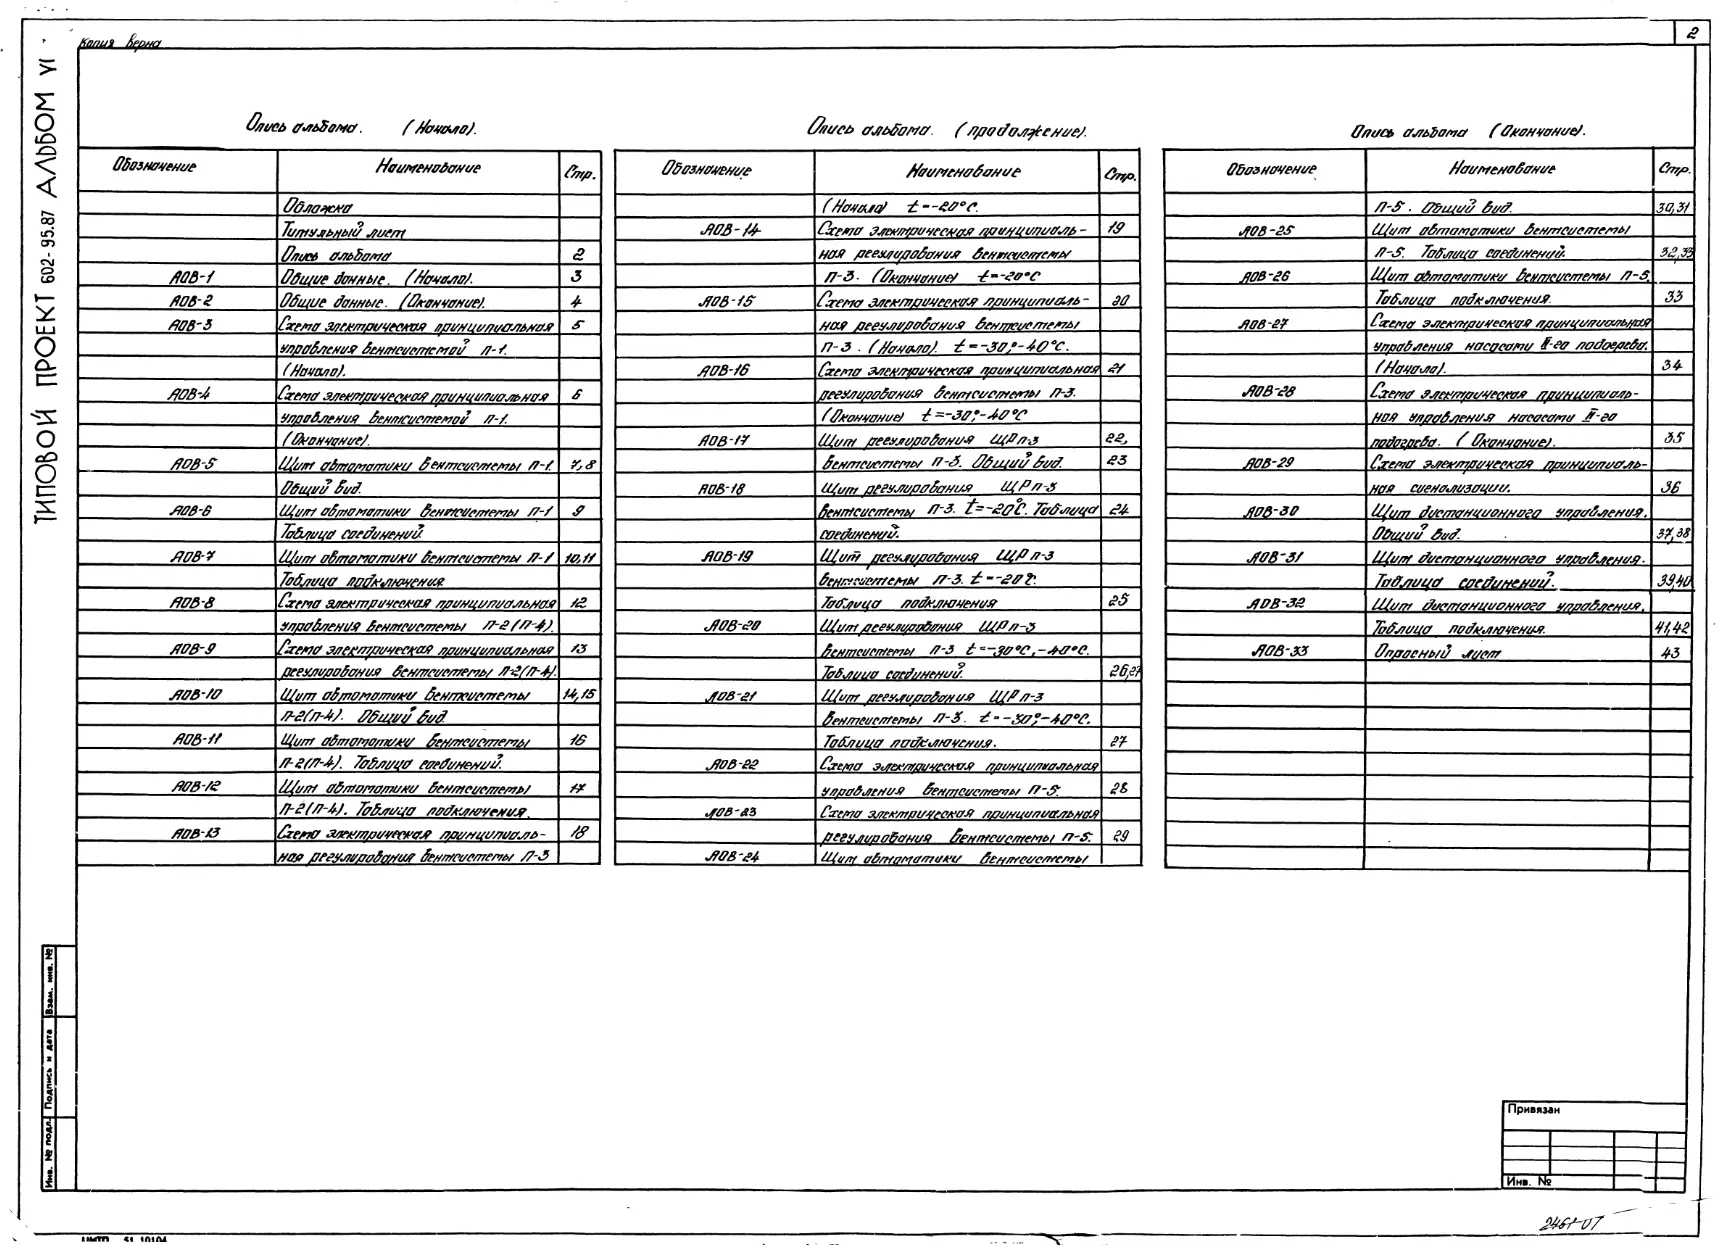 Копия верна
2
ТИПОВОЙ ПРОЕКТ 602-95.87 АЛЬБОМ VI
Опись альбома. (Начало).
Обозначение Наименование Стр.
Обложка
Титульный лист
Опись альбома 2
АОВ-1 Общие данные. (Начало). 3
АОВ-2 Общие данные. (Окончание). 4
АОВ-3 Схема электрическая принципиальная 5
управления вентсистемой П-1.
(Начало).
АОВ-4 Схема электрическая принципиальная 6
управления вентсистемой П-1.
(Окончание).
АОВ-5 Щит автоматики вентсистемы П-1. 7,8
Общий вид.
АОВ-6 Щит автоматики вентсистемы П-1 9
Таблица соединений.
АОВ-7 Щит автоматики вентсистемы П-1 10,11
Таблица подключения
АОВ-8 Схема электрическая принципиальная 12
управления вентсистемы П-2(П-4).
АОВ-9 Схема электрическая принципиальная 13
регулирования вентсистемы П-2(П-4).
АОВ-10 Щит автоматики вентсистемы 14,15
П-2(П-4). Общий вид
АОВ-11 Щит автоматики вентсистемы 16
П-2(П-4). Таблица соединений.
АОВ-12 Щит автоматики вентсистемы 17
П-2(П-4). Таблица подключения.
АОВ-13 Схема электрическая принципиаль- 18
ная регулирования вентсистемы П-3
Опись альбома. (продолжение).
Обозначение Наименование Стр.
(Начало) t=-20°С.
АОВ-14 Схема электрическая принципиаль- 19
ная регулирования вентсистемы
П-3. (Окончание) t=-20°С
АОВ-15 Схема электрическая принципиаль- 20
ная регулирования вентсистемы
П-3. (Начало). t=-30°,-40°С.
АОВ-16 Схема электрическая принципиальная 21
регулирования вентсистемы П-3.
(Окончание) t=-30°,-40°С
АОВ-17 Щит регулирования ЩРП-3 22,
вентсистемы П-3. Общий вид. 23
АОВ-18 Щит регулирования ЩРП-3
вентсистемы П-3. t=-20°С. Таблица 24
соединений.
АОВ-19 Щит регулирования ЩРП-3
вентсистемы П-3. t=-20°С.
Таблица подключения 25
АОВ-20 Щит регулирования ЩРП-3
вентсистемы П-3 t=-30°С,-40°С.
Таблица соединений. 26,27
АОВ-21 Щит регулирования ЩРП-3
вентсистемы П-3. t=-30°,-40°С.
Таблица подключения. 27
АОВ-22 Схема электрическая принципиальная
управления вентсистемы П-5. 28
АОВ-23 Схема электрическая принципиальная
регулирования вентсистемы П-5. 29
АОВ-24 Щит автоматики вентсистемы
Опись альбома (Окончание).
Обозначение Наименование Стр.
П-5. Общий вид. 30,31
АОВ-25 Щит автоматики вентсистемы
П-5. Таблица соединений. 32,33
АОВ-26 Щит автоматики вентсистемы П-5.
Таблица подключения. 33
АОВ-27 Схема электрическая принципиальная
управления насосами II-го подогрева.
(Начало). 34
АОВ-28 Схема электрическая принципиаль-
ная управления насосами II-го
подогрева. (Окончание). 35
АОВ-29 Схема электрическая принципиаль-
ная сигнализации. 36
АОВ-30 Щит дистанционного управления.
Общий вид. 37,38
АОВ-31 Щит дистанционного управления.
Таблица соединений. 39,40
АОВ-32 Щит дистанционного управления.
Таблица подключения. 41,42
АОВ-33 Опросный лист 43
Взам. инв. №
Подпись и дата
Инв. № подл.
Привязан
Инв. №